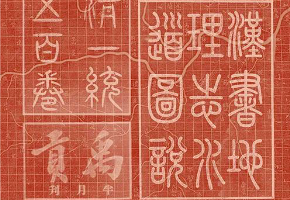 漢書地
理志水
道圖說
清一統
五百卷
禹貢
半月刊